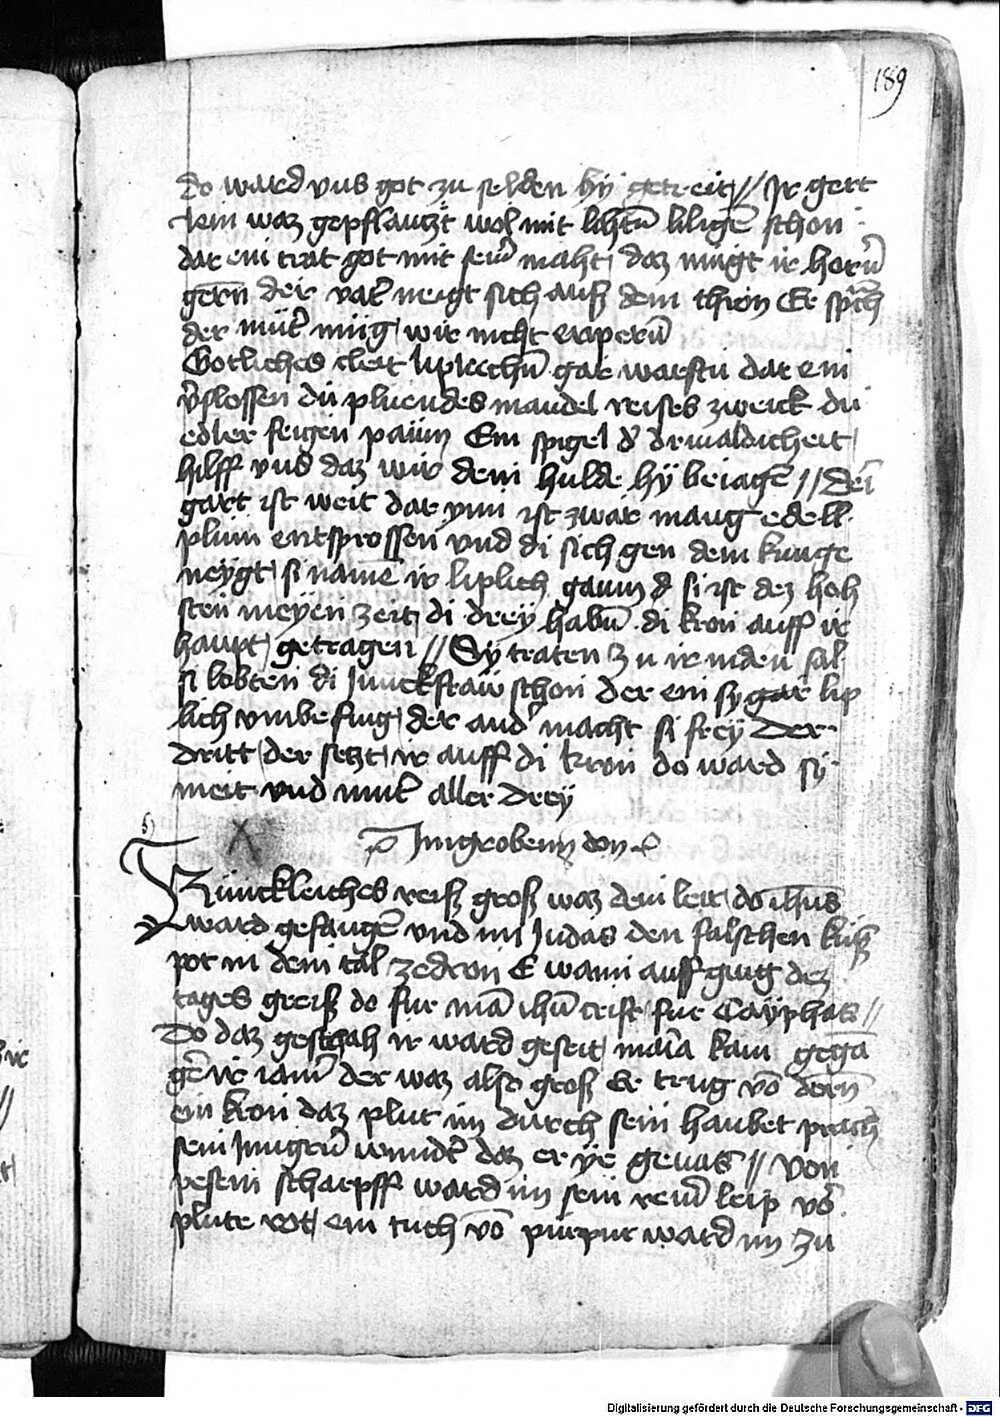 189
do ward vns got zu selden hÿ getreit // Ir gert
lein waz gepflantzt wol mit lihtn̄ liligē schon
dar ein trat got mit seim̄ maht daz mugt ir horn̄
gern der vat̄ neigt sich auß dem thron Er sprach
der mut̄ mug wir nicht enpern̄
Gotliches cleit liplechn̄ gar warstu dar ein
v̄slossen du pluendes mandel reises zweick du
edler feigen paum Ein spigel d' driualdicheit
hilff vns daz wir dein hulde hÿ beiagē // Dein
gart ist weit dar ynn ist zwar mang edell
plum entsprossen vnd di sich gen dem kunge
neÿgt si namē ir liplich gaum d si ist dez hoh
sten meÿen zeit di dreÿ habn̄ di kron auff ir
haupt getragen // Sy traten zu ir in den sal
si lobten di Junckfraw schon der ein sy gar lip
lich vmbefing der and' macht si freÿ Der
dritt der setzt ir auff di kron do ward sÿ
meit vnd mut̄ aller dreÿ
Im groben don
Trunckleiches reiß groß waz dein leit do ihus
ward gefangē vnd im Judas den falschen kuß
pot in dem tal zedron E wann auff ging dez
tages greiß do fur mā ihn̄ crist fur Caÿphas //
Do daz geschah ir ward geseit maria kam gegā
gē ir iam̄ der waz also groß Er trug vō dorn
ein kron daz plut im durch sein haubet prach
sein Jungern̄ wundt̄ daz er ÿe genas // Von
pesem scharpff ward im sein rein̄ leip vō
plute rot ein tuch vō purpur ward im zu
Digitalisierung gefördert durch die Deutsche Forschungsgemeinschaft - DFG